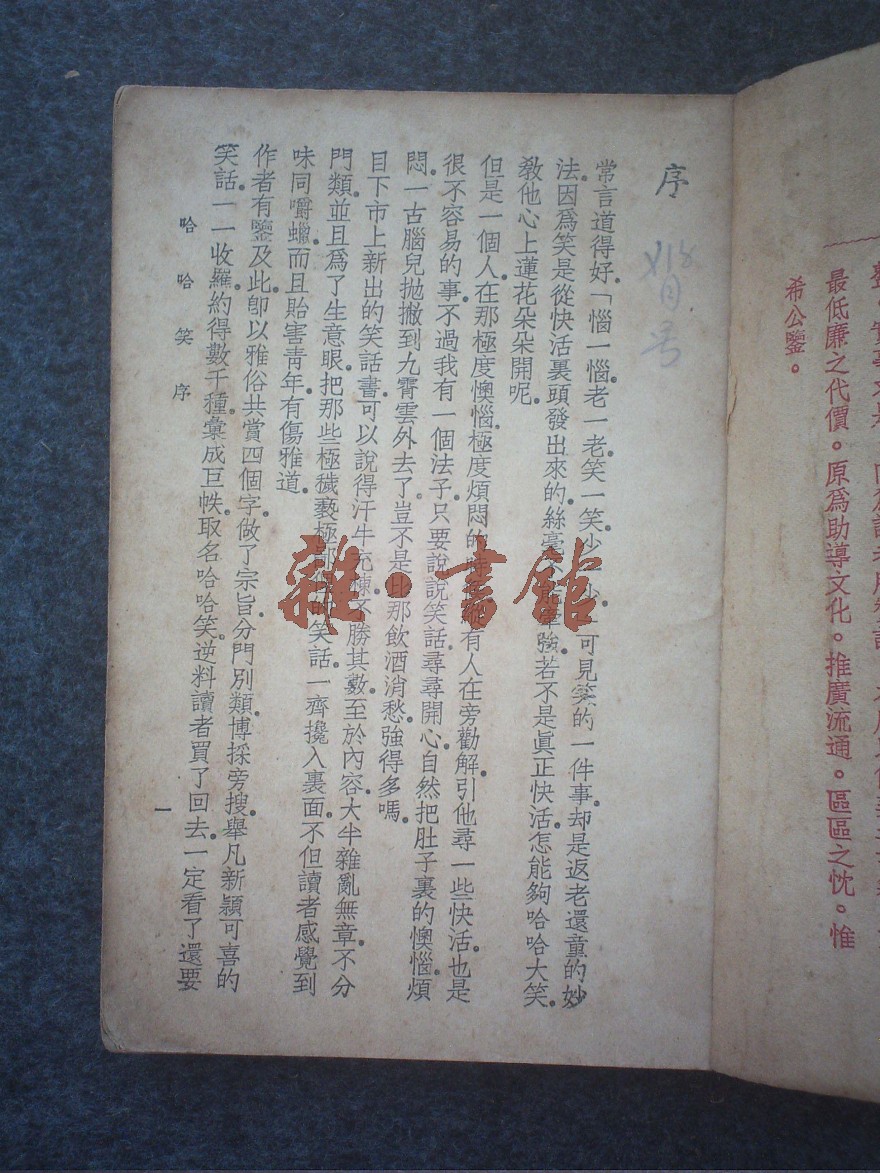 最低廉之代價。原爲助導文化。推廣流通。區區之忱。惟
希公鑒。
序
常言道得好。「惱一惱。老一老。笑一笑。少一少。」可見笑的一件事。却是返老還童的妙
法。因爲笑是從快活裏頭發出來的。絲毫 強。若不是眞正快活。怎能夠哈哈大笑。
敎他心上蓮花朵朵開呢。
但是一個人。在那極度懊惱。極度煩悶的 有人在旁勸解。引他尋一些快活。也是
很不容易的事。不過我有一個法子。只要說說笑話。尋尋開心。自然把肚子裏的懊惱煩
悶。一古腦兒抛撇到九霄雲外去了。豈不是比那飲酒消愁。強得多嗎。
目下市上新出的笑話書。可以說得汗牛充棟。不勝其數。至於內容。大半雜亂無章。不分
門類。並且爲了生意眼。把那些極穢褻極 的笑話。一齊攙入裏面。不但讀者感覺到
味同嚼蠟。而且貽害靑年。有傷雅道。
作者有鑒及此。卽以雅俗共賞四個字。做了宗旨。分門別類。博採旁搜。舉凡新穎可喜的
笑話。一一收羅。約得數千種。彙成巨帙。取名哈哈笑。逆料讀者買了回去。一定看了還要
哈哈笑 序
一
雜·書館